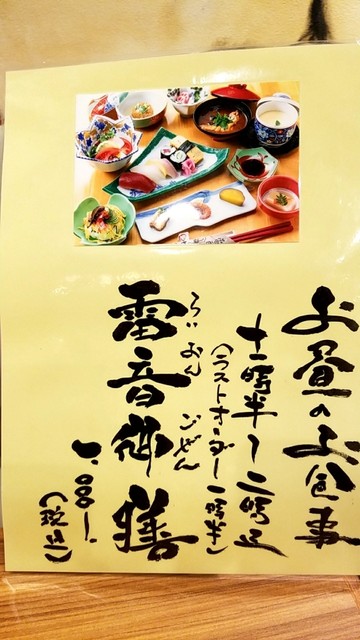 お昼のお食事
十一時半〜二時迄
(ラストオーダー一時半)
らい おん ごぜん
雷音御膳
一、000ー
(税込)